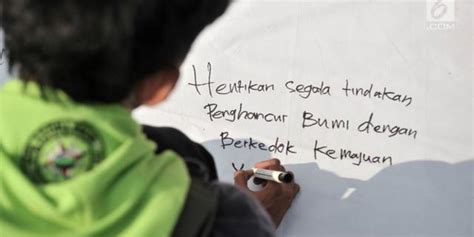 Hentikan segala tindakan
Penghancur Bumi dengan
Berkedok Kemajuan
.COM